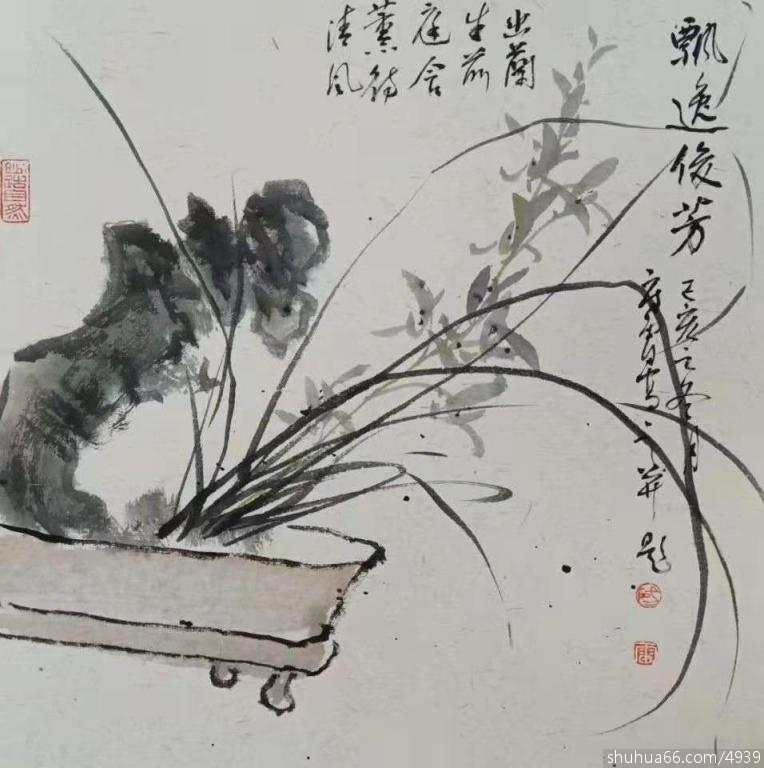 飘逸俊芳
己亥之冬月
并题
幽蘭
生前
庭含
薰待
清风
shuhua66.com/4939